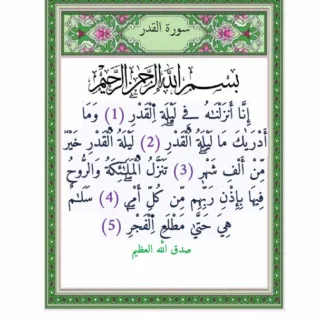 سورة القدر
بسم الله الرحمن الرحيم
إِنَّا أَنزَلْنَـٰهُ فِى لَيْلَةِ ٱلْقَدْرِ (1) وَمَا
أَدْرَىٰكَ مَا لَيْلَةُ ٱلْقَدْرِ (2) لَيْلَةُ ٱلْقَدْرِ خَيْرٌ
مِّنْ أَلْفِ شَهْرٍ (3) تَنَزَّلُ ٱلْمَلَـٰٓئِكَةُ وَٱلرُّوحُ
فِيهَا بِإِذْنِ رَبِّهِم مِّن كُلِّ أَمْرٍ (4) سَلَـٰمٌ
هِىَ حَتَّىٰ مَطْلَعِ ٱلْفَجْرِ (5)
صدق الله العظيم